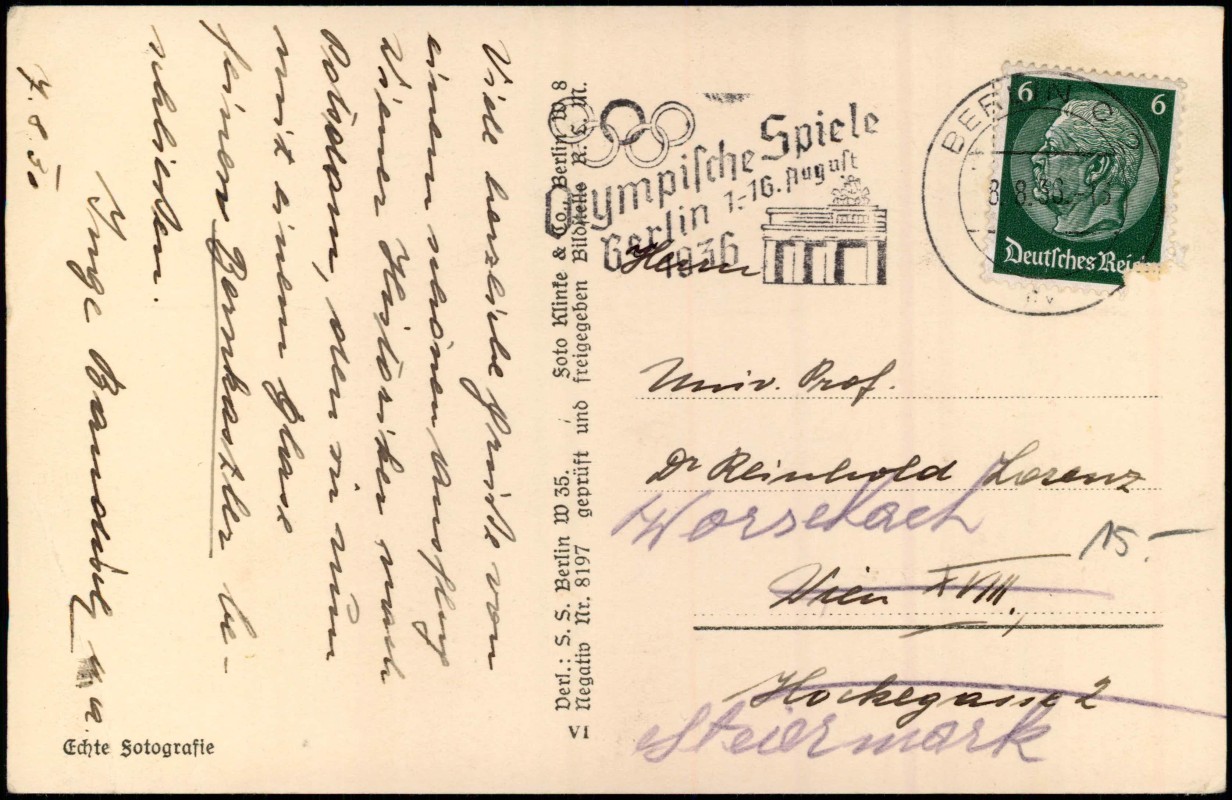 Viele herzliche Grüße von
einem schönen Ausflug
Wiener Historiker nach
Potsdam, den wir nun
mit einem Glase
feinen Bernkastler be-
schließen.
Inge
7.8.36
Echte Fotografie
Verl.: S. S. Berlin W 35. Foto Klinke & Co., Berlin W 8
Negativ Nr. 8197 geprüft und freigegeben Bildstelle R. L. M.
VI
Olympische Spiele
Berlin 1.-16. August
1936
BERLIN C 2
8.8.36.
6 6
Deutsches Reich
Herrn
Univ. Prof.
Dr Reinhold Lorenz
Worschach
15.-
Wien XVIII.,
Hockegasse 2
Steiermark